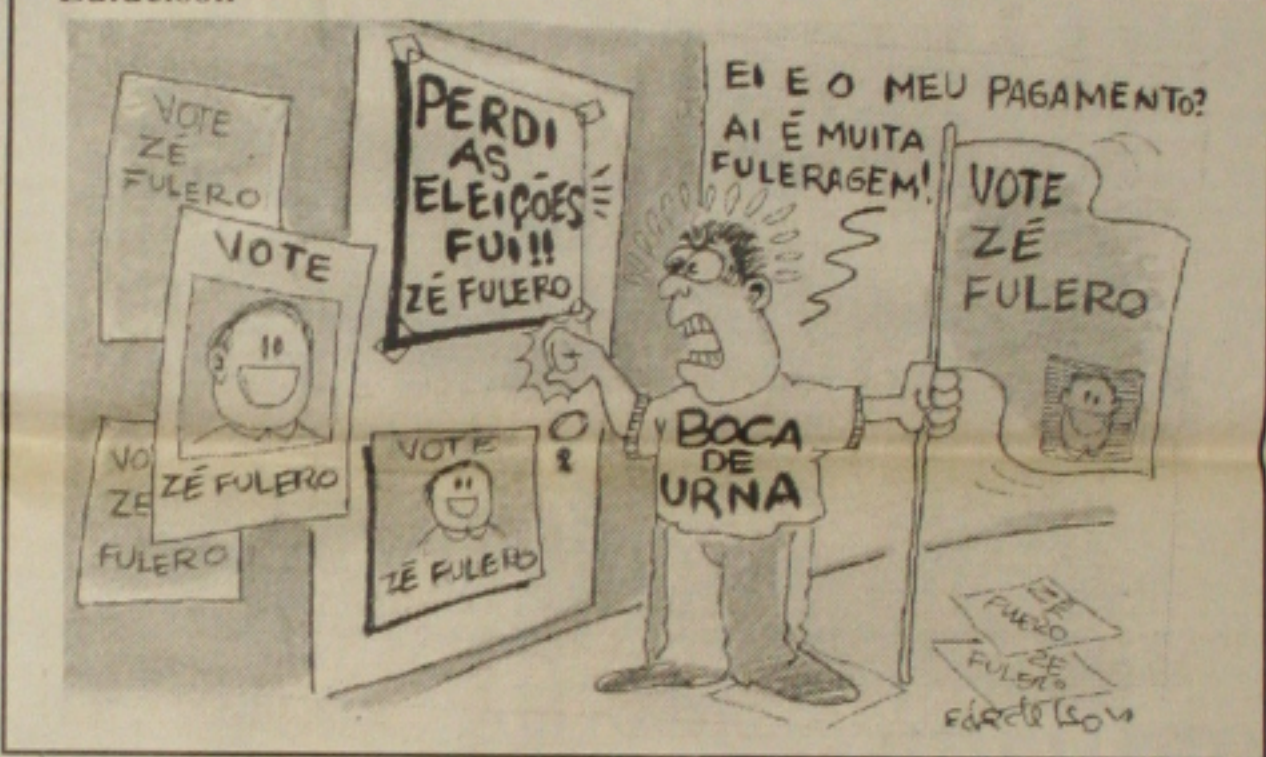 VOTE
ZÉ
FULERO
VOTE
ZÉ FULERO
VO
ZE
FULERO
PERDI
AS
ELEIÇÕES
FUI!!
ZÉ FULERO
VOTE
ZÉ FULERO
EI E O MEU PAGAMENTO?
AI É MUITA
FULERAGEM!
BOCA
DE
URNA
VOTE
ZÉ
FULERO
ZÉ
FULERO
ZÉ
FULERO